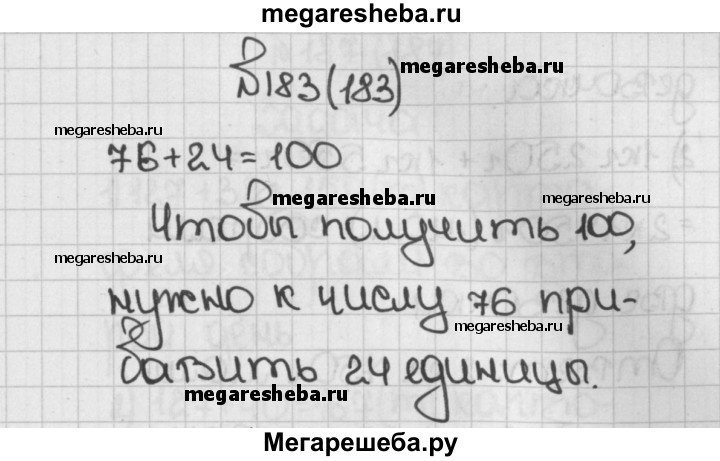 megaresheba.ru
№183(183) megaresheba.ru
megaresheba.ru
76+24=100
megaresheba.ru megaresheba.ru
Чтобы получить 100,
megaresheba.ru
нужно к числу 76 при-
megaresheba.ru
бавить 24 единицы.
megaresheba.ru
Мегарешеба.ру